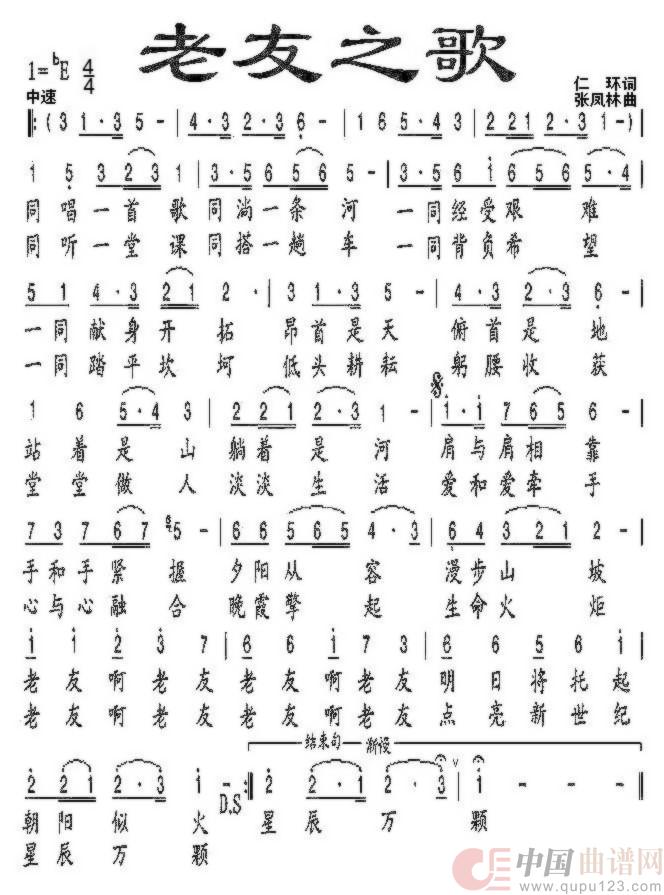 老友之歌
1=♭E 4/4
中速
仁 环词
张凤林曲
‖:(3 1·3 5 - | 3·3 2·3 6 - | 1 6 5·4 3 | 2 2 1 2·3 1 -)|
1 5 3 2 3 1 | 3·5 6 5 6 5 - | 3·5 6 i 6 5 6 5·4 |
同唱一首歌同淌一条河一同经受艰难
同听一堂课同搭一趟车一同背负希望
5 1 4·3 2 1 2· | 3 1·3 5 - | 4·3 2 2·3 6 - |
一同献身开拓昂首是天俯首是地
一同踏平坎坷低头耕耘躬腰收获
1 6 5·4 3 | 2 2 2 1 2·3 1 - | i·i 7 6 5 6 |
站着是山躺着是河肩与肩相靠
堂堂做人淡淡生活爱和爱牵手
7 3 7 6 7 5 - | 6 6 5 6 5 4·3 | 6 4 3 2 1 2 - |
手和手紧握夕阳从容漫步山坡
心与心融合晚霞擎起生命火炬
i i 2 3 7 | 6 6 i 3 7 | 6 6 5 6 i |
老友啊老友老友啊老友明日将托起
老友啊老友老友啊老友点亮新世纪
结束句 渐慢
2 2 1 2·3 1 - :‖ 2 2 1 2·3 ∨ | i - ‖
D.S
朝阳似火 星辰万颗
星辰万颗
中国曲谱网
www.qupu123.com